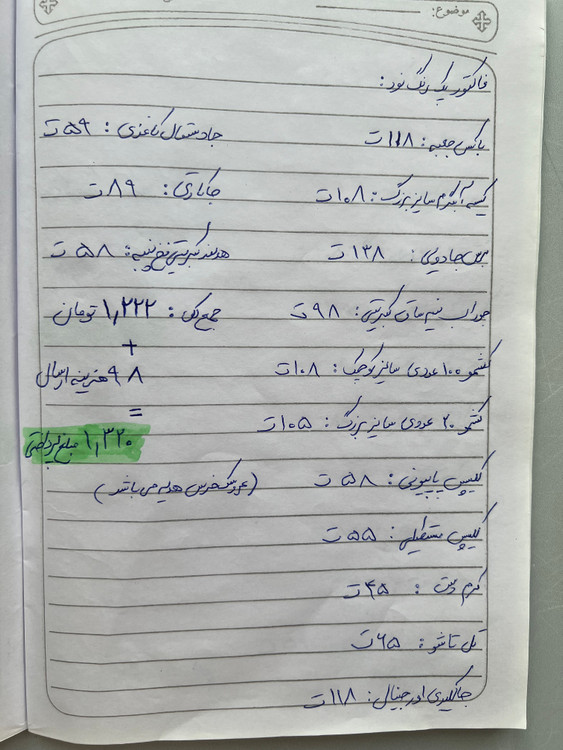 موضوع:
فاکتور پک رنگ نود:
باکس جعبه: ۱۱۸ ت
کیسه آبگرم سایز بزرگ: ۱۰۸ ت
برس جادویی: ۱۳۸ ت
جوراب نیم ساق کبریتی: ۹۸ ت
کشمو ۱۰۰ عددی سایز کوچک: ۱۰۸ ت
کشمو ۲۰ عددی سایز بزرگ: ۱۰۵ ت
کلیپس پاپیونی: ۵۸ ت
کلیپس مستطیلی: ۵۵ ت
کرم دست: ۴۵ ت
تل تاشو: ۶۵ ت
جاکلیدی اورجینال: ۱۱۸ ت
جادستمال کاغذی: ۵۹ ت
جاکارتی: ۸۹ ت
هدبند کبریتی نخ پنبه: ۵۸ ت
جمع کل: ۱,۲۲۲ تومان
+
۹۸ هزینه ارسال
=
۱,۳۲۰ مبلغ پرداختی
(عروسک خرس هدیه می باشد)